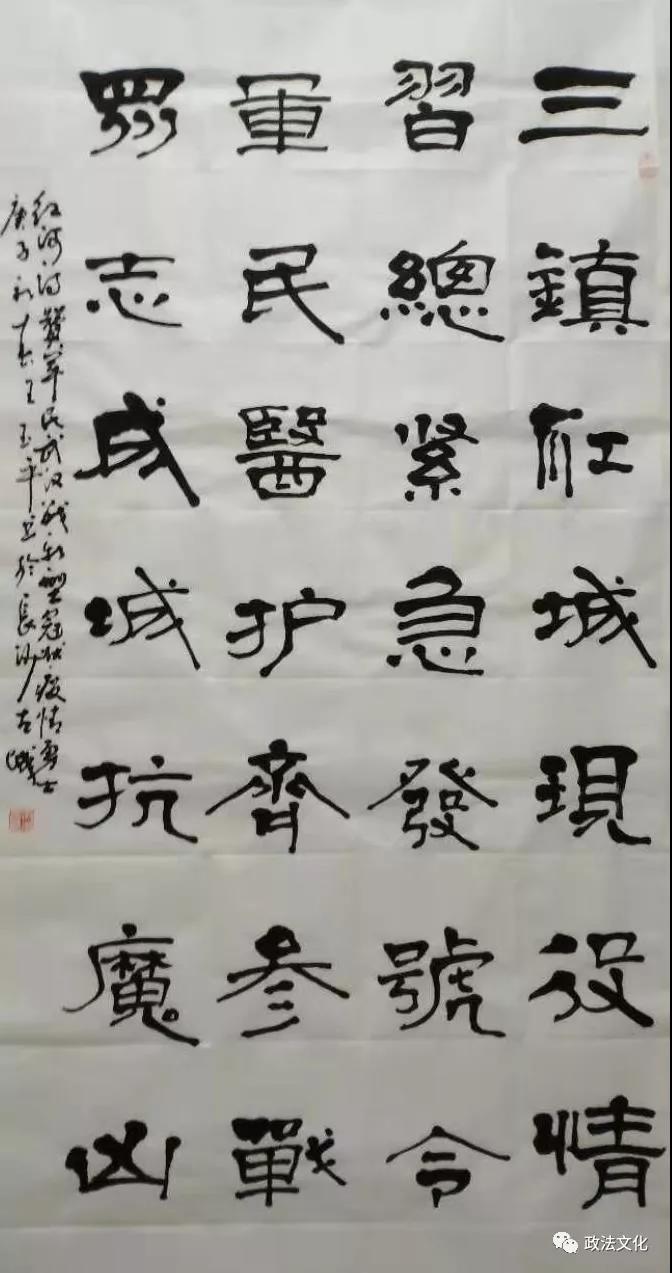 三鎮江城現役情
習總紧急發號令
軍民醫护齊参戰
眾志成城抗魔凶
红河诗赞军民武汉战新型冠状疫情勇士
庚子初王玉平书於長沙
政法文化